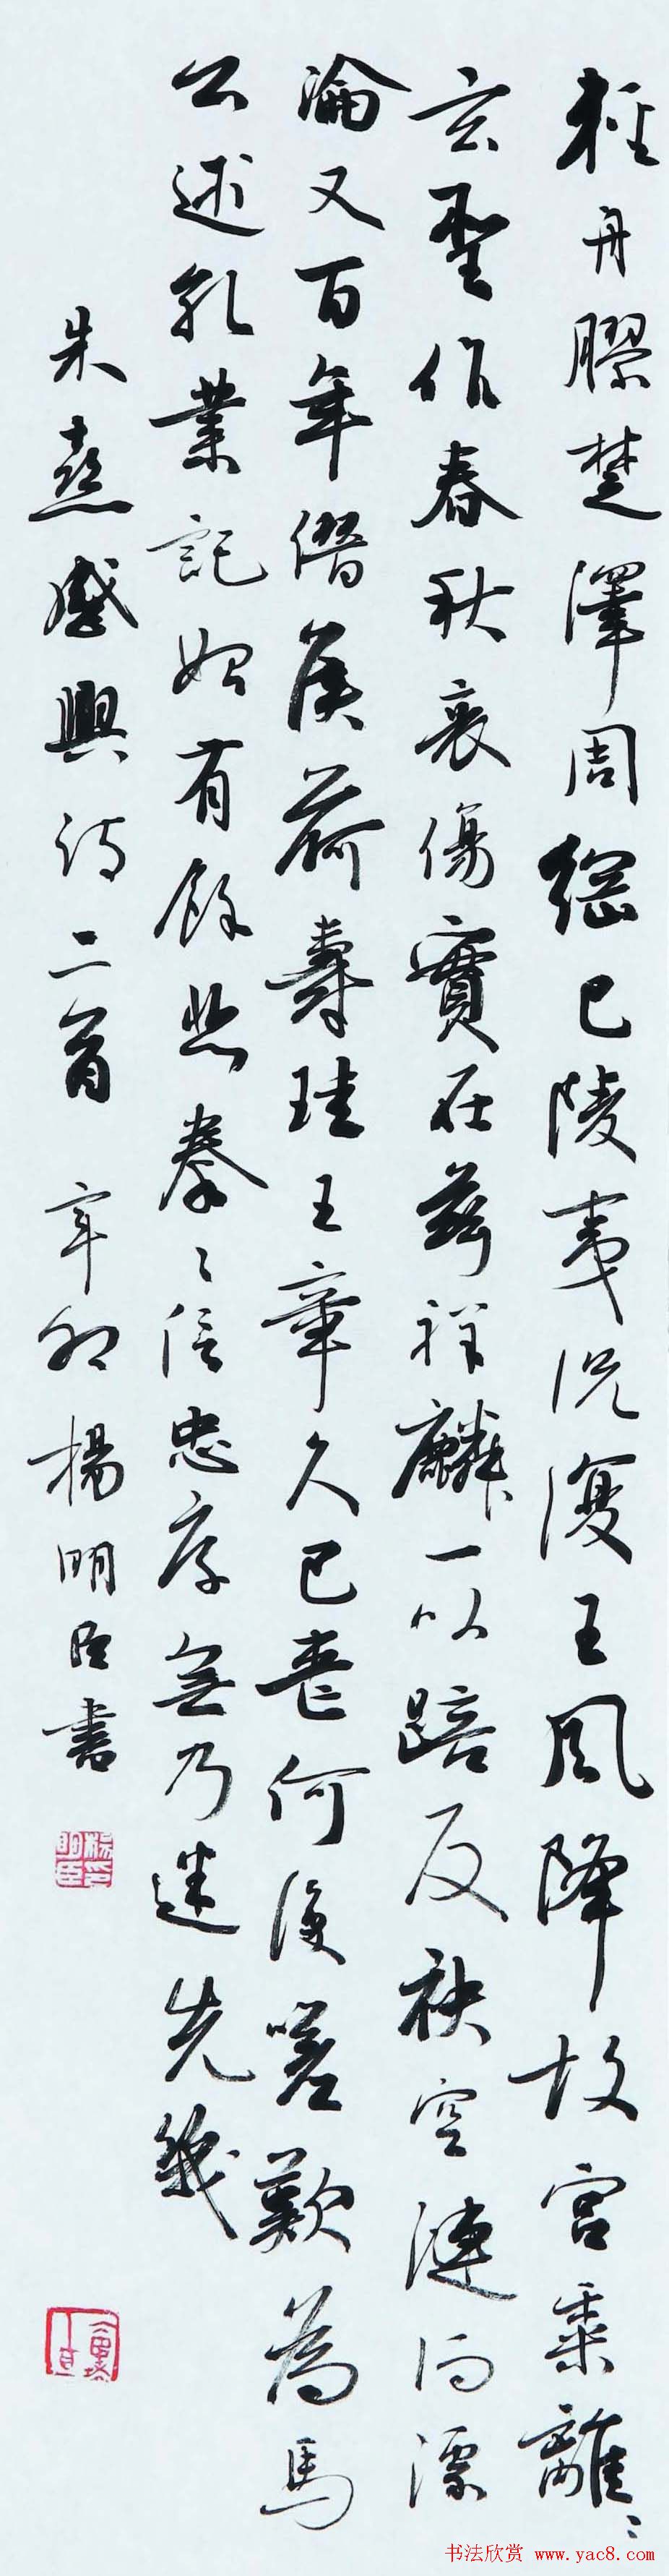 輕舟膠楚澤周綱已陵夷況復王風降故宮黍離〻
玄聖作春秋哀傷實在茲祥麟一以踣反袂空漣洏漂
淪又百年僭侯荷爵珪王章久已喪何復嗟歎為馬
公述孔業託始有餘悲拳〻信忠厚無乃迷先幾
朱熹感興詩二首 辛卯 楊明臣書
楊明臣印
书法欣赏 www.yac8.com